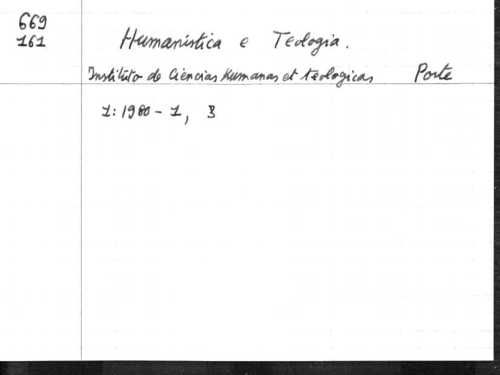 669
161
Humanística e Teologia.
Instituto de Ciencias Humanas et teologicas Porte
1: 1980 - 1, 3